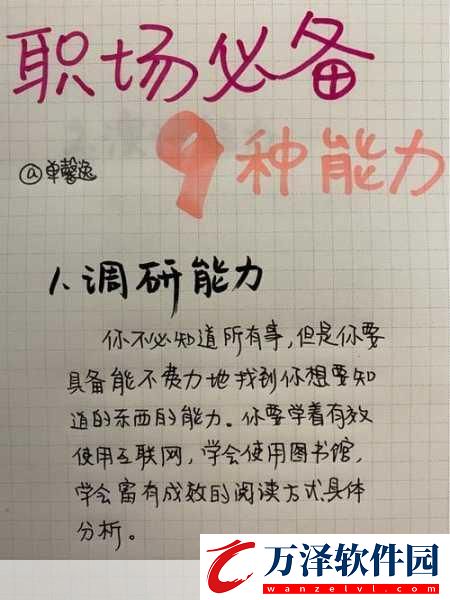 职场必备
9种能力
@单馨逸
1、调研能力
你不必知道所有事,但是你要
具备能不费力地找到你想要知
道的东西的能力。你要学着有效
使用互联网,学会使用图书馆,
学会富有成效的阅读方式具体
分析。
万泽软件园
www.wanzelvl.com